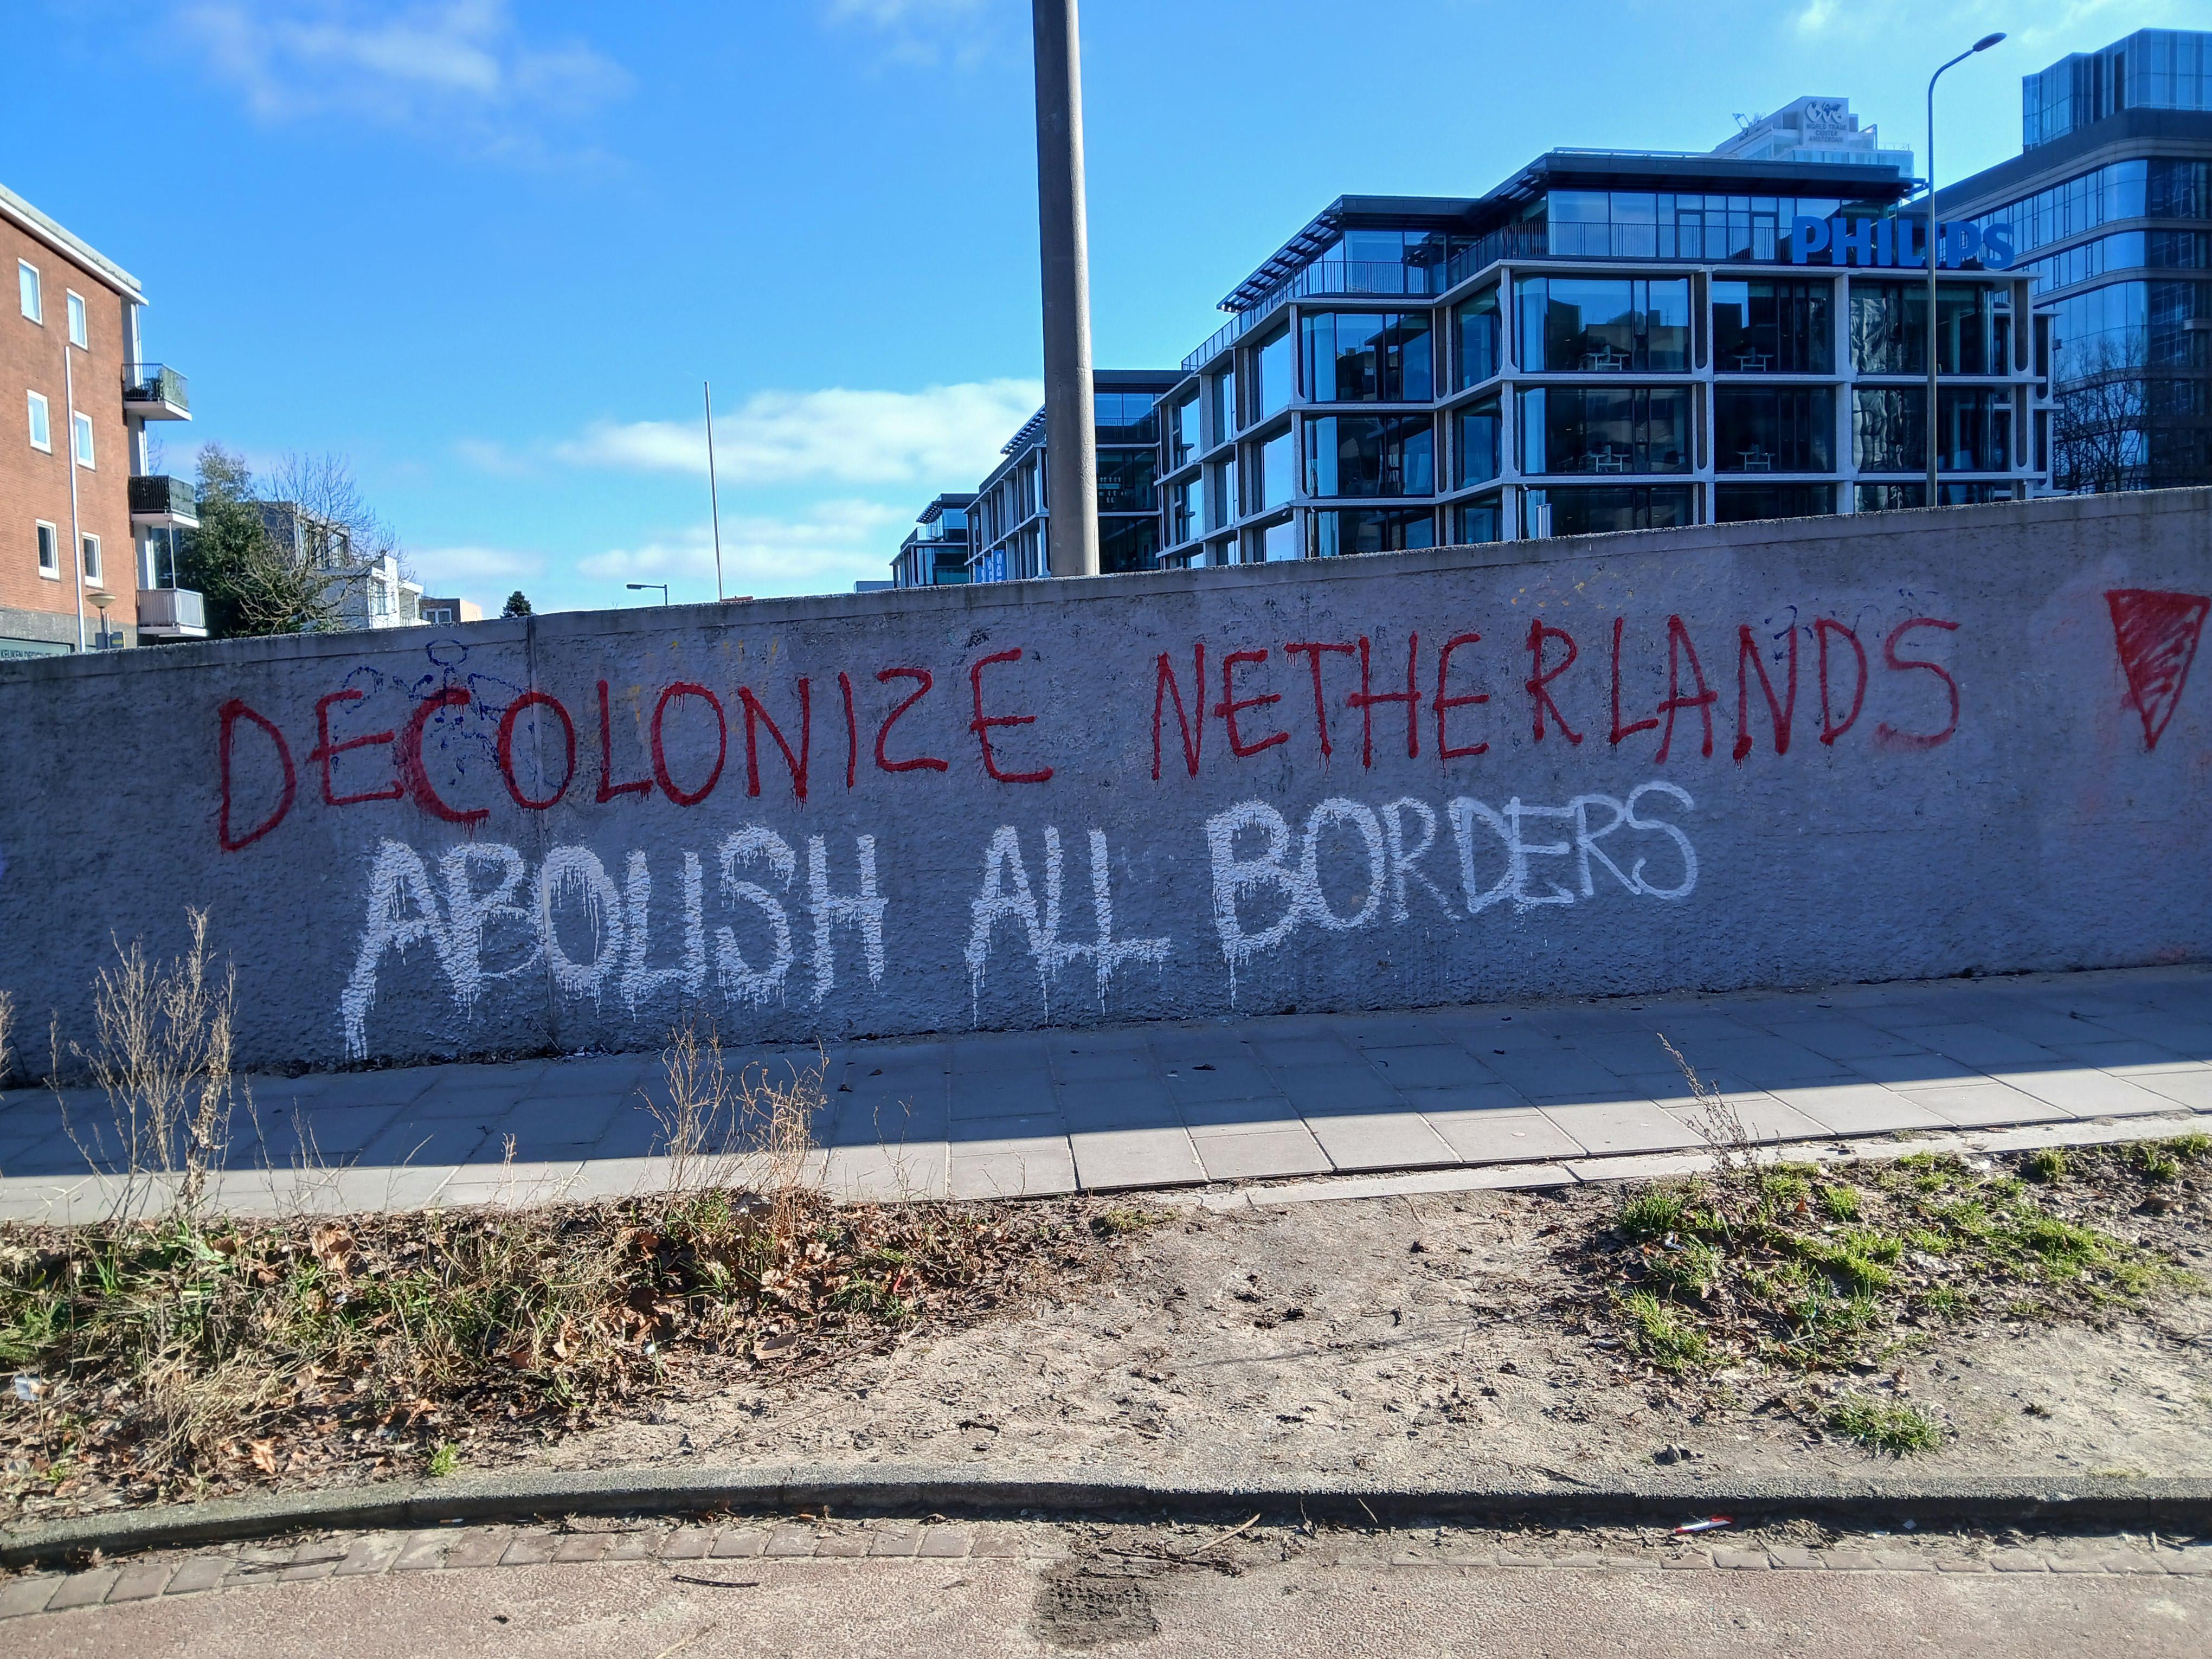 WORLD TRADE
CENTER
AMSTERDAM
PHILIPS
DECOLONIZE NETHERLANDS
ABOLISH ALL BORDERS